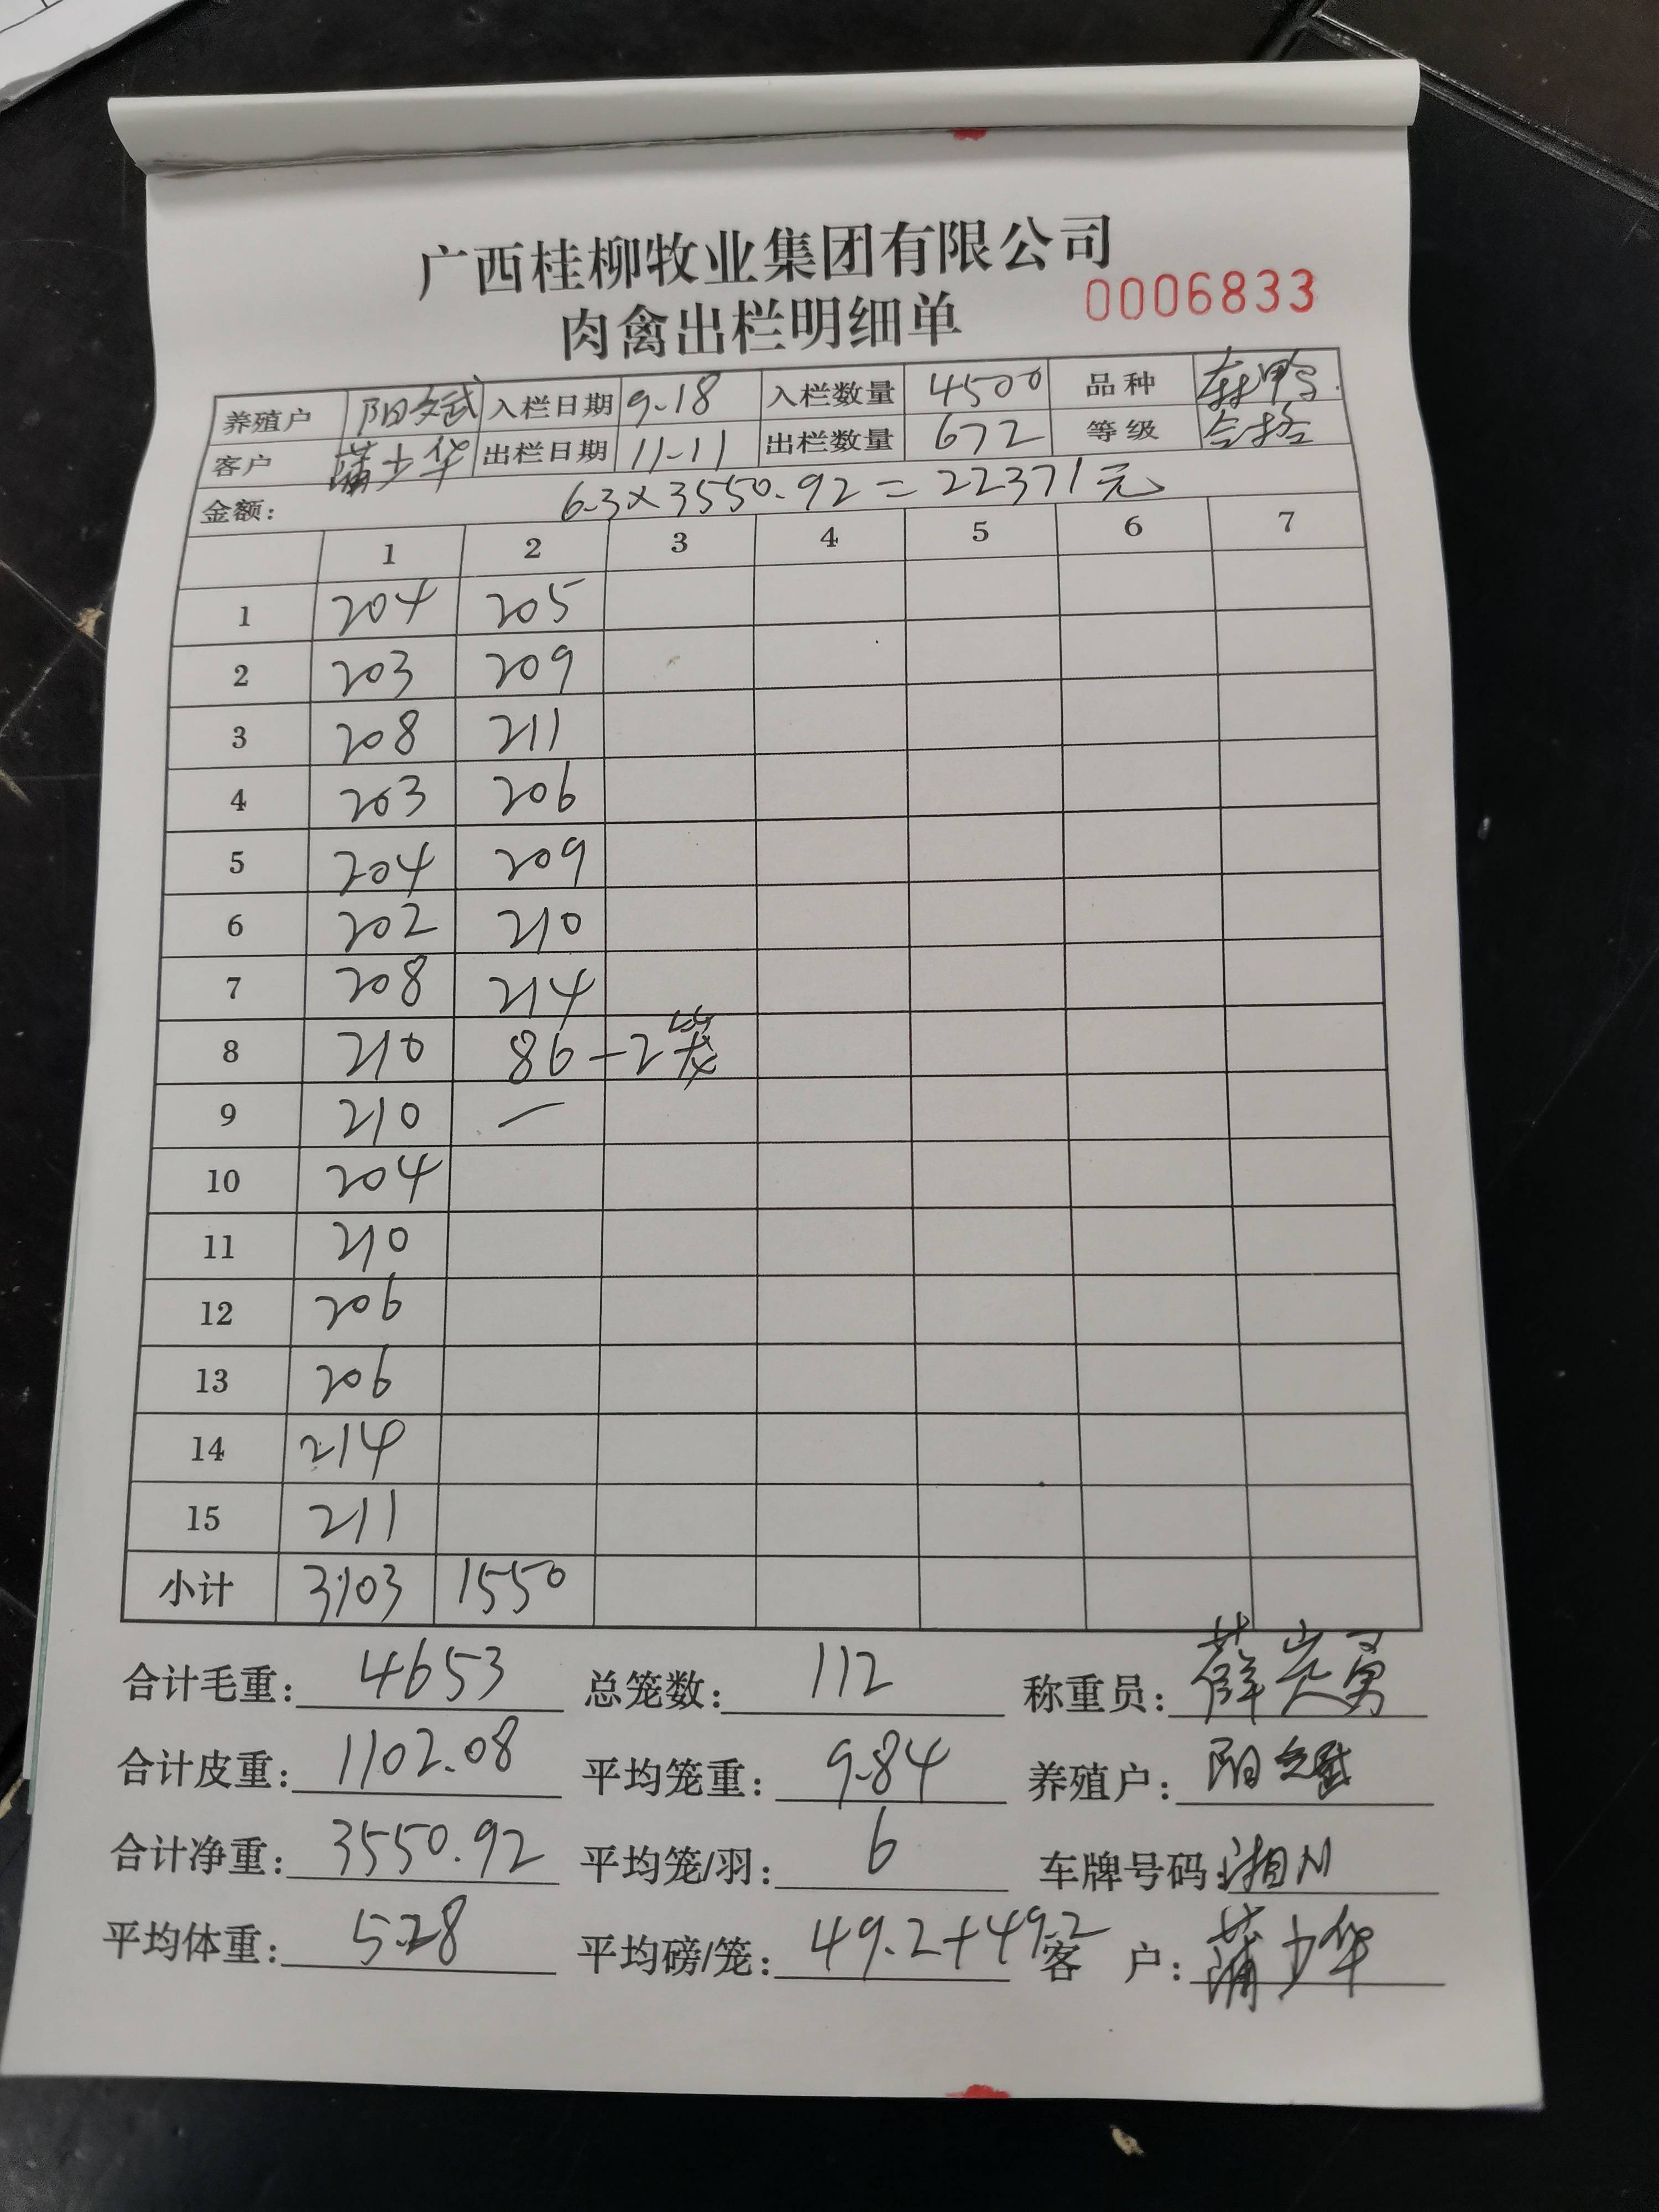 广西桂柳牧业集团有限公司
肉禽出栏明细单 0006833
养殖户 阳文武 入栏日期 9.18 入栏数量 4500 品种
客户 蒲少华 出栏日期 11-11 出栏数量 672 等级 合格
金额: 6.3×3550.92=22371元
1 2 3 4 5 6 7
1 204 205
2 203 209
3 208 211
4 203 206
5 204 209
6 202 210
7 208 214
8 210 86-2笼
9 210 —
10 204
11 210
12 206
13 206
14 214
15 211
小计 3103 1550
合计毛重: 4653 总笼数: 112 称重员:
合计皮重: 1102.08 平均笼重: 9.84 养殖户: 阳文武
合计净重: 3550.92 平均笼/羽: 6 车牌号码:
平均体重: 5.28 平均磅/笼: 49.2+49.2 客 户: 蒲少华